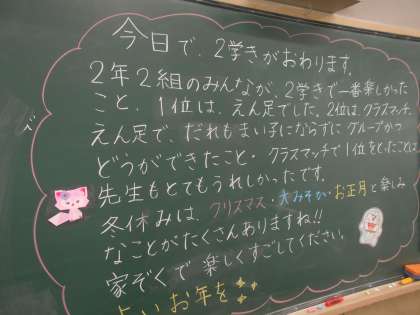 今日で、2学きがおわります。
2年2組のみんなが、2学きで一番楽しかった
こと、1位は、えん足でした。2位はクラスマッチ。
えん足で、だれもまい子にならずにグループかつ
どうができたこと・クラスマッチで1位をとったことは、
先生もとてもうれしかったです。
冬休みは、クリスマス・大みそか・お正月と楽しみ
なことがたくさんありますね!!
家ぞくで楽しくすごしてください。
よいお年を